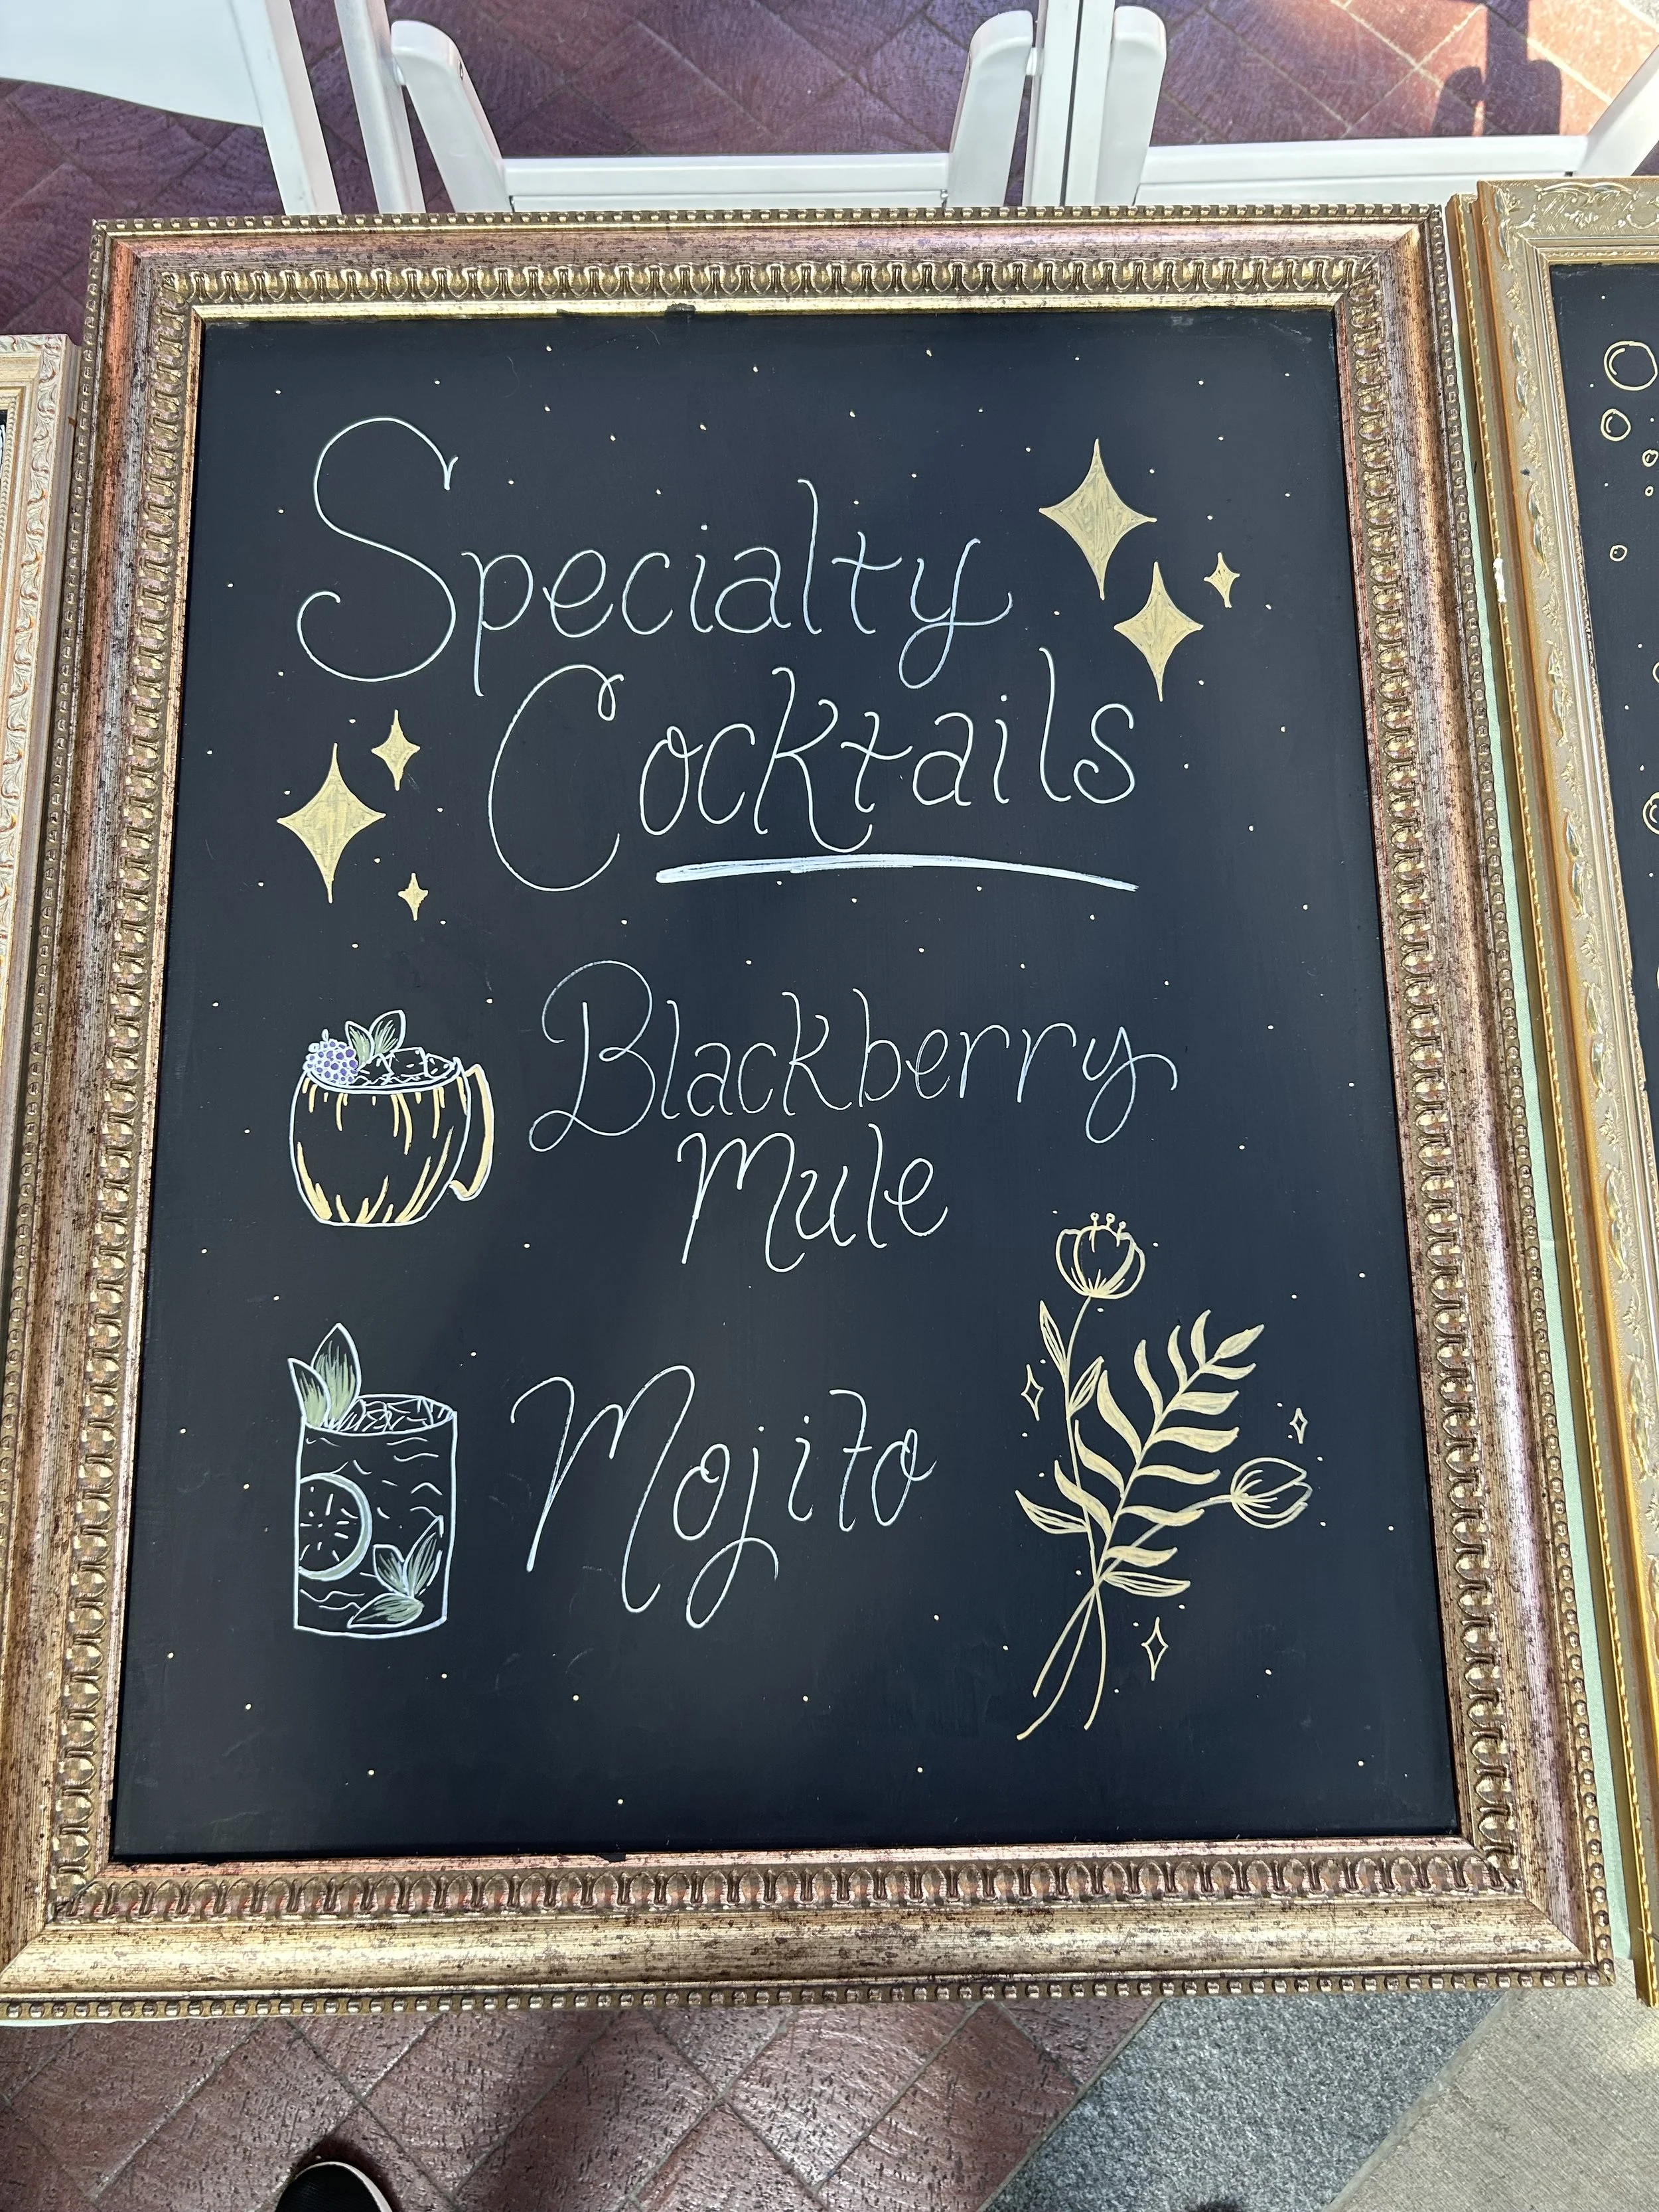 Specialty
Cocktails
Blackberry
Mule
Mojito